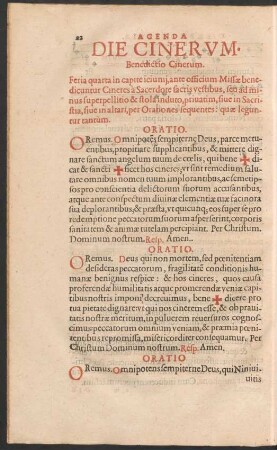 22 AGENDA
DIE CINERVM.
Benedictio Cinerum.
Feria quarta in capite ieiunij, ante officium Missæ bene-
dicuntur Cineres à Sacerdote sacris vestibus, seu ad mi-
nus superpellitio & stola induto, priuatim, siue in Sacri-
stia, siue in altari, per Orationes sequentes: quæ legun-
tur tantum.
ORATIO.
ORemus. Omnipotēs sempiterne Deus, parce metu-
entibus, propitiare supplicantibus, & mittere dig-
nare sanctum angelum tuum de cœlis, qui bene ✠ di-
cat & sancti ✠ ficet hos cineres, vt sint remedium salu-
tare omnibus nomen tuum implorantibus, ac semetip-
sos pro conscientia delictorum suorum accusantibus,
atque ante conspectum diuinæ clementiæ tuæ facinora
sua deplorantibus, & præsta, vt quicunq; eos super se pro
redemptione peccatorum suorum asperserint, corporis
sanitatem & animæ tutelam percipiant. Per Christum.
Dominum nostrum. Resp. Amen.
ORATIO.
ORemus. Deus qui non mortem, sed pœnitentiam
desideras peccatorum, fragilitatē conditionis hu-
manæ benignus respice: & hos cineres, quos causa
proferendæ humilitatis atque promerendæ veniæ capi-
tibus nostris imponi decreuimus, bene ✠ dicere pro tua
pietate dignare: vt qui nos cinerem esse, & ob prauita-
tis nostræ meritum, in puluerem reuersuros cognos-
cimus: peccatorum omnium veniam, & præmia pœni-
tentibus repromissa, misericorditer consequamur. Per
Christum Dominum nostrum. Resp. Amen.
ORATIO
ORemus. Omnipotens sempiterne Deus, qui Niniui-